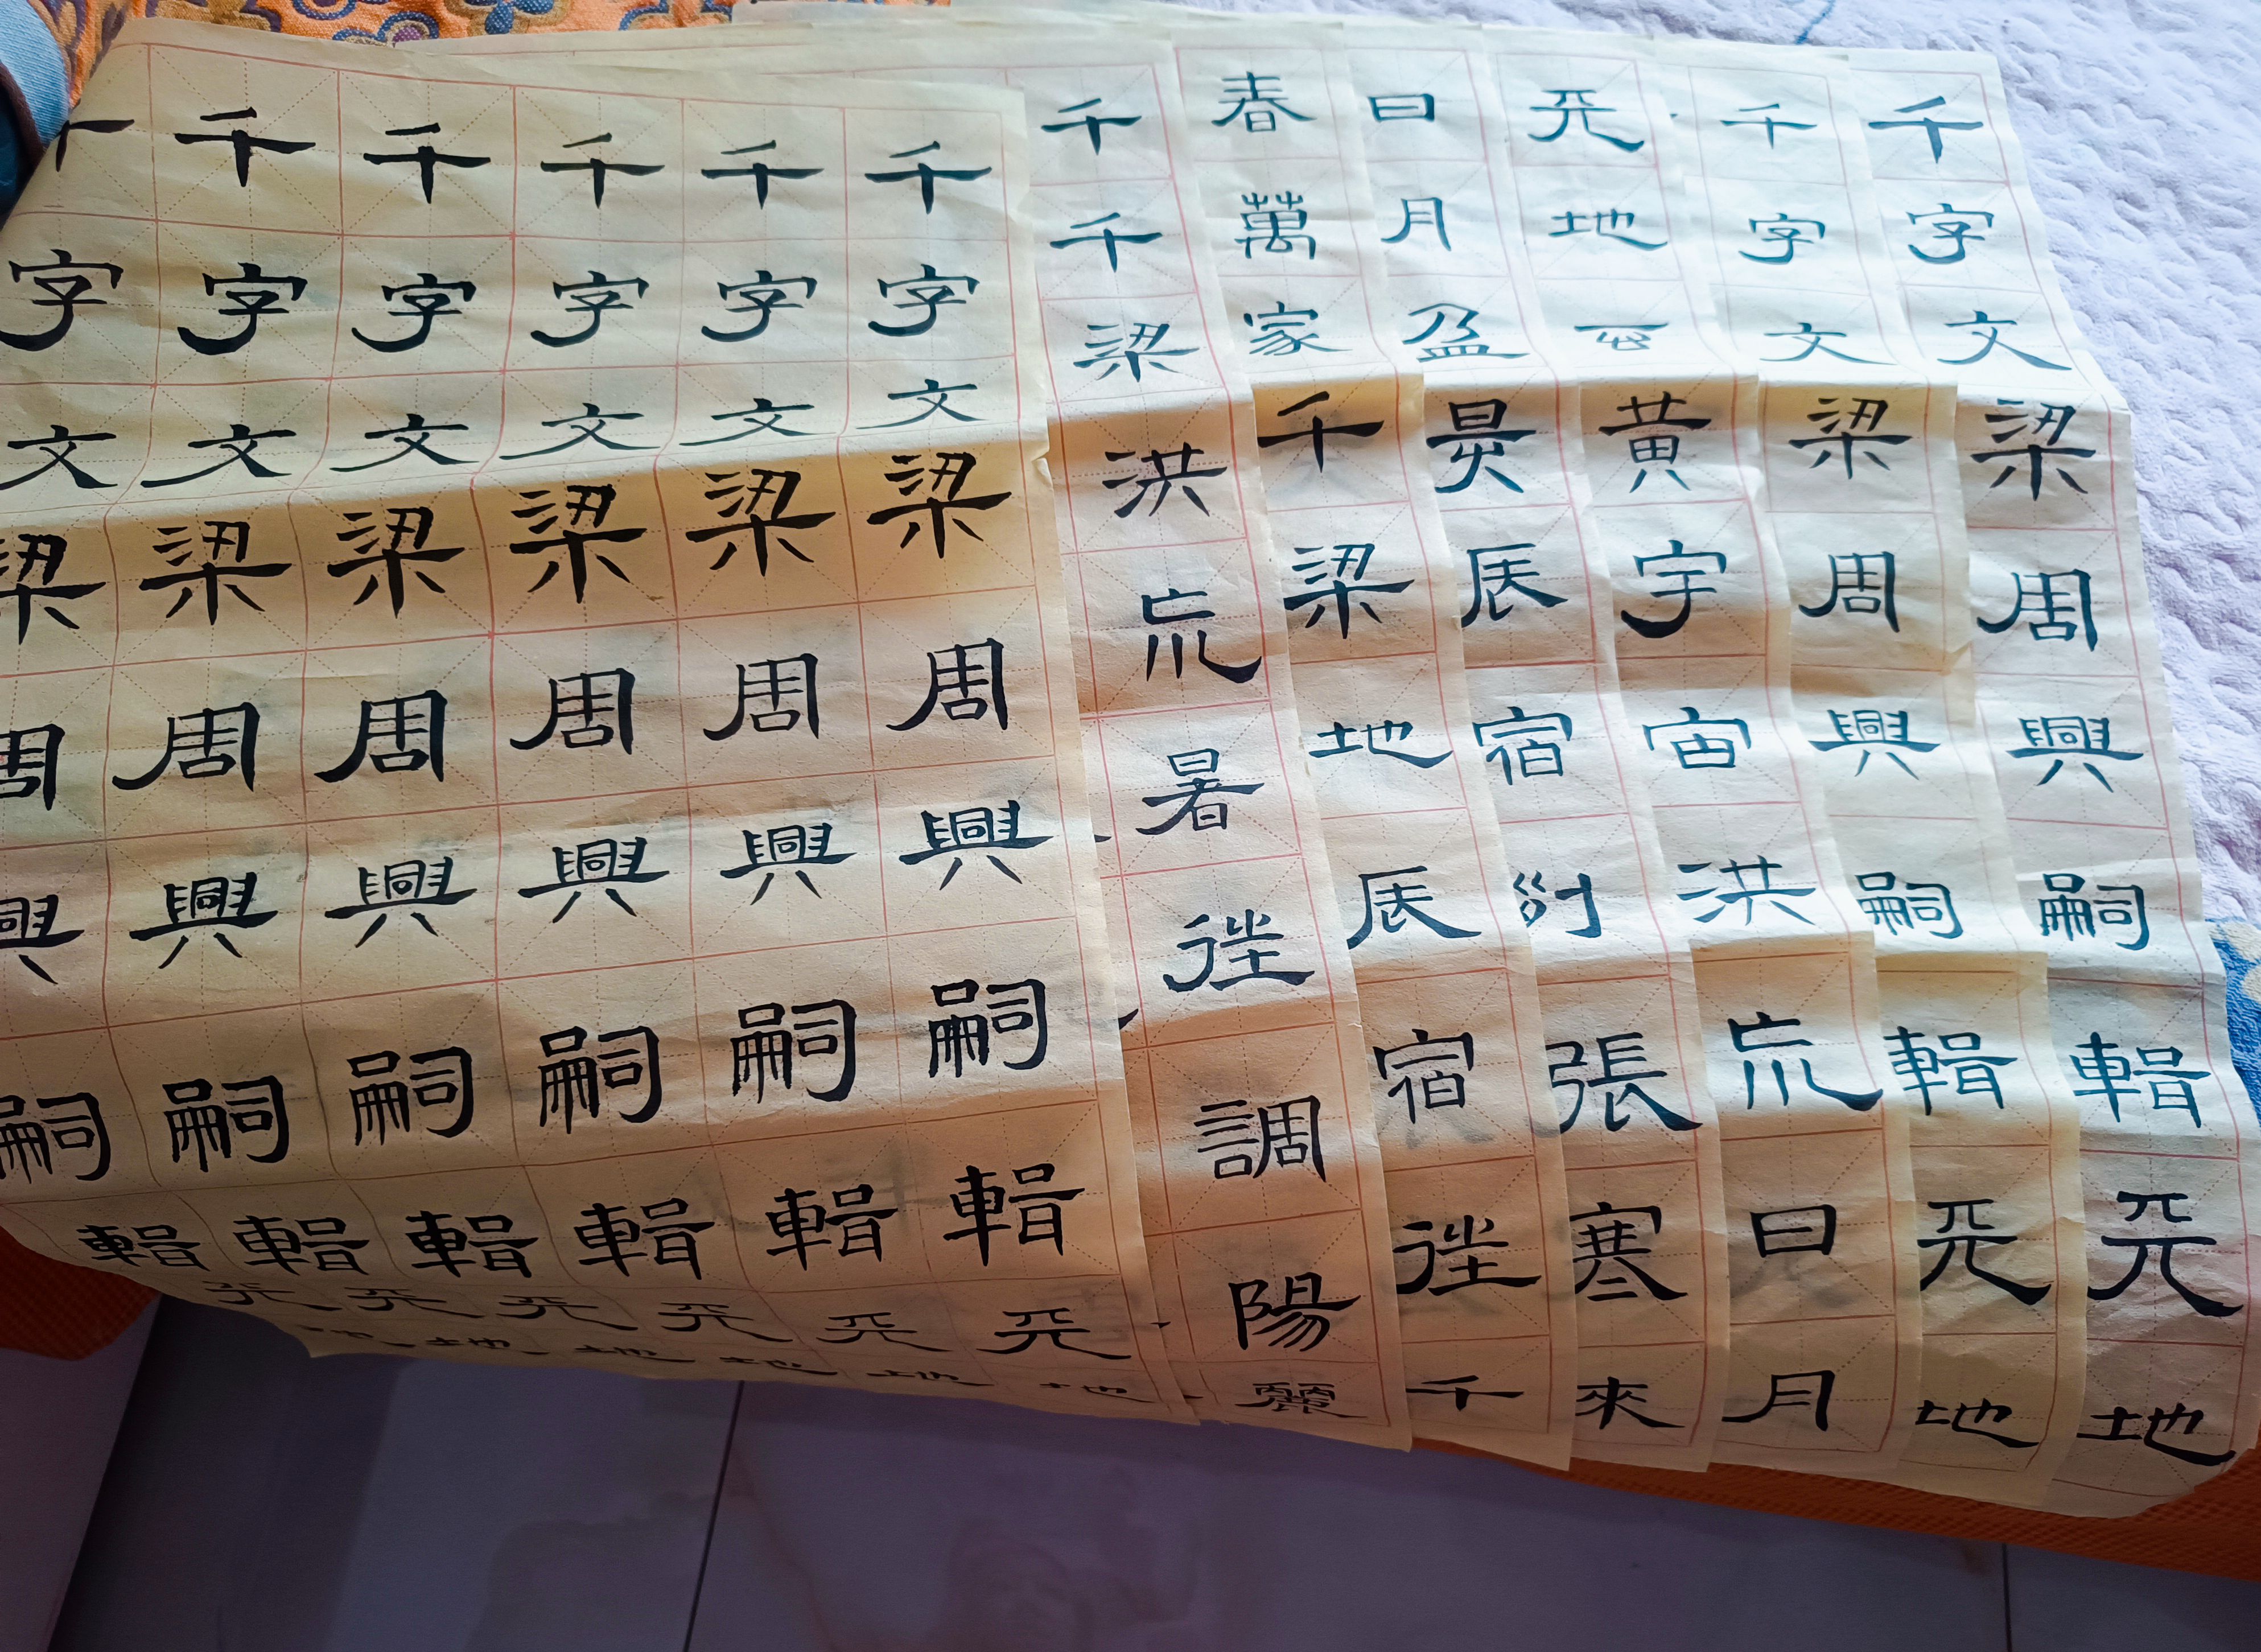 千字文梁周興嗣輯天地
千字文梁周興嗣輯天地
天地玄黃宇宙洪巟日月
日月盈昃辰宿列張寒來
春萬家千梁地辰宿往千
千千梁洪巟暑往調陽麗
千字文梁周興嗣輯天地
千字文梁周興嗣輯天地
千字文梁周興嗣輯天地
千字文梁周興嗣輯天地
千字文梁周興嗣輯天地
字文梁周興嗣輯天